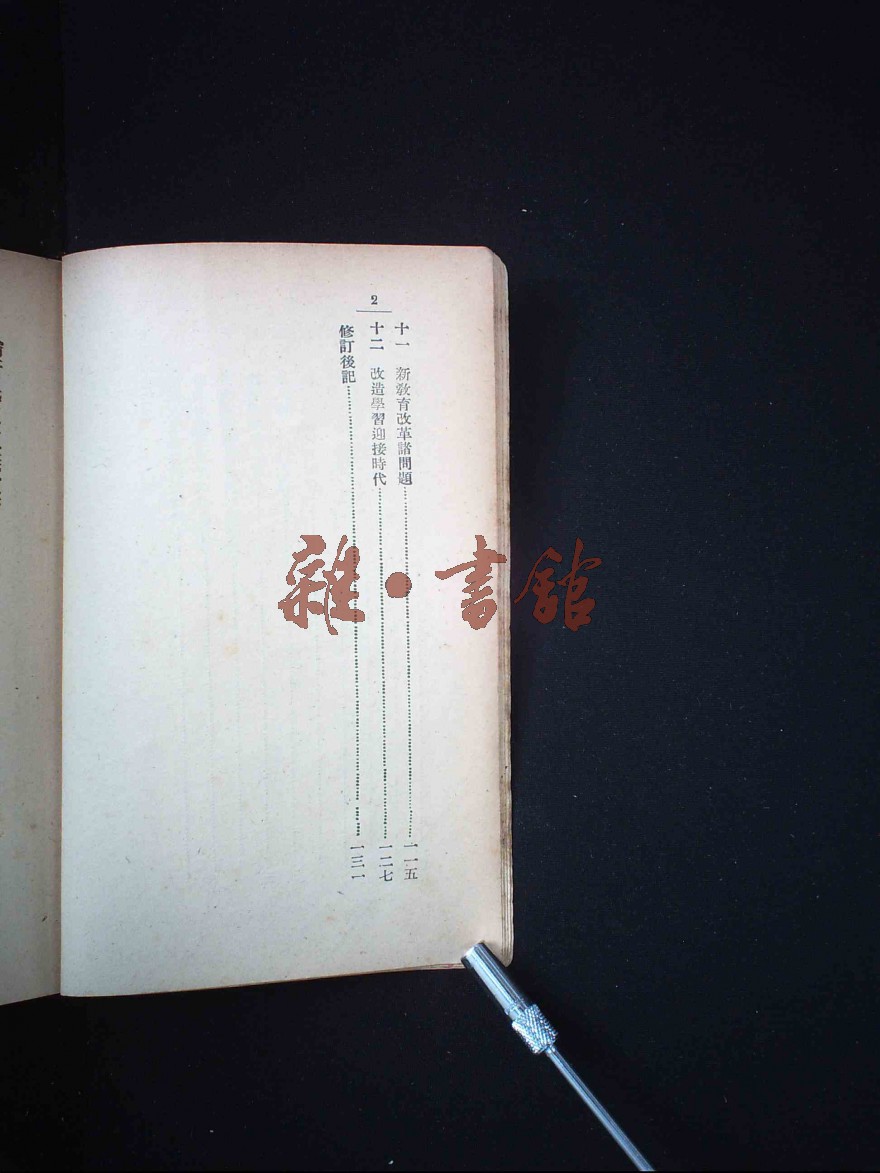 2
十一　新教育改革諸問題……一一五
十二　改造學習迎接時代……一二七
修訂後記……一三一
雜·書館